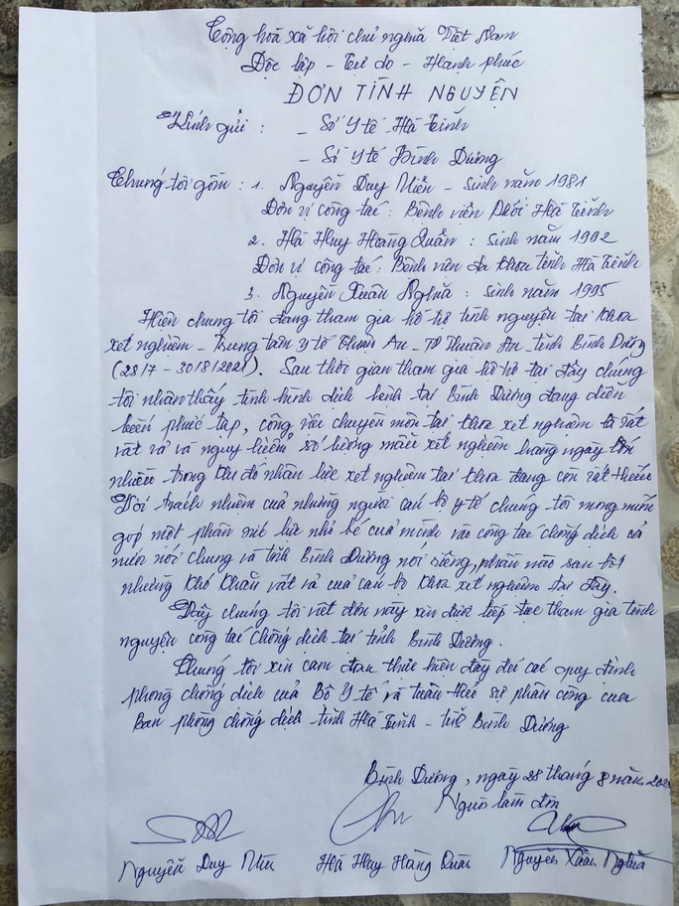 Cộng hoà xã hội chủ nghĩa Việt Nam
Độc lập - Tự do - Hạnh phúc
ĐƠN TÌNH NGUYỆN
Kính gửi : - Sở Y tế Hà Tĩnh
- Sở Y tế Bình Dương
Chúng tôi gồm : 1. Nguyễn Duy - Sinh năm 1981
Đơn vị công tác : Bệnh viện Phổi Hà Tĩnh
2. Hà Huy Hoàng Quân : Sinh năm 1992
Đơn vị công tác : Bệnh viện đa khoa tỉnh Hà Tĩnh
3. Nguyễn Xuân Nghĩa : Sinh năm 1995
Hiện chúng tôi đang tham gia hỗ trợ tình nguyện tại Khoa
xét nghiệm - Trung tâm Y tế Thuận An - TP Thuận An - tỉnh Bình Dương
(28/7 - 30/8/2021). Sau thời gian tham gia hỗ trợ tại đây chúng
tôi nhận thấy tình hình dịch bệnh tại Bình Dương đang diễn
biến phức tạp, công việc chuyên môn tại khoa xét nghiệm là rất
vất vả và nguy hiểm, số lượng mẫu xét nghiệm hàng ngày
nhiều trong khi đó nhân lực xét nghiệm tại khoa đang còn rất thiếu
Với trách nhiệm của những người cán bộ y tế chúng tôi mong muốn
góp một phần sức lực nhỏ bé của mình vào công tác chống dịch cả
nước nói chung và tỉnh Bình Dương nói riêng, phần nào san sớt
những khó khăn vất vả của cán bộ khoa xét nghiệm tại đây.
Vậy chúng tôi viết đơn này xin được tiếp tục tham gia tình
nguyện công tác chống dịch tại tỉnh Bình Dương.
Chúng tôi xin cam đoan thực hiện đầy đủ các quy định
phòng chống dịch của Bộ Y tế và tuân thủ sự phân công của
Ban phòng chống dịch - tỉnh Hà Tĩnh - tỉnh Bình Dương
Bình Dương, ngày 28 tháng 8 năm
Người làm đơn
Nguyễn Duy Hà Huy Hoàng Quân Nguyễn Xuân Nghĩa